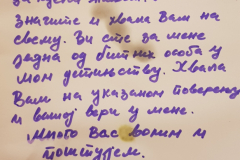 значите и хвала Вам на
свему. Ви сте за мене
једна од битних особа у
мом детињству. Хвала
Вам на указаном поверењу
и вашој вери у мене.
Много Вас волим и
поштујем.